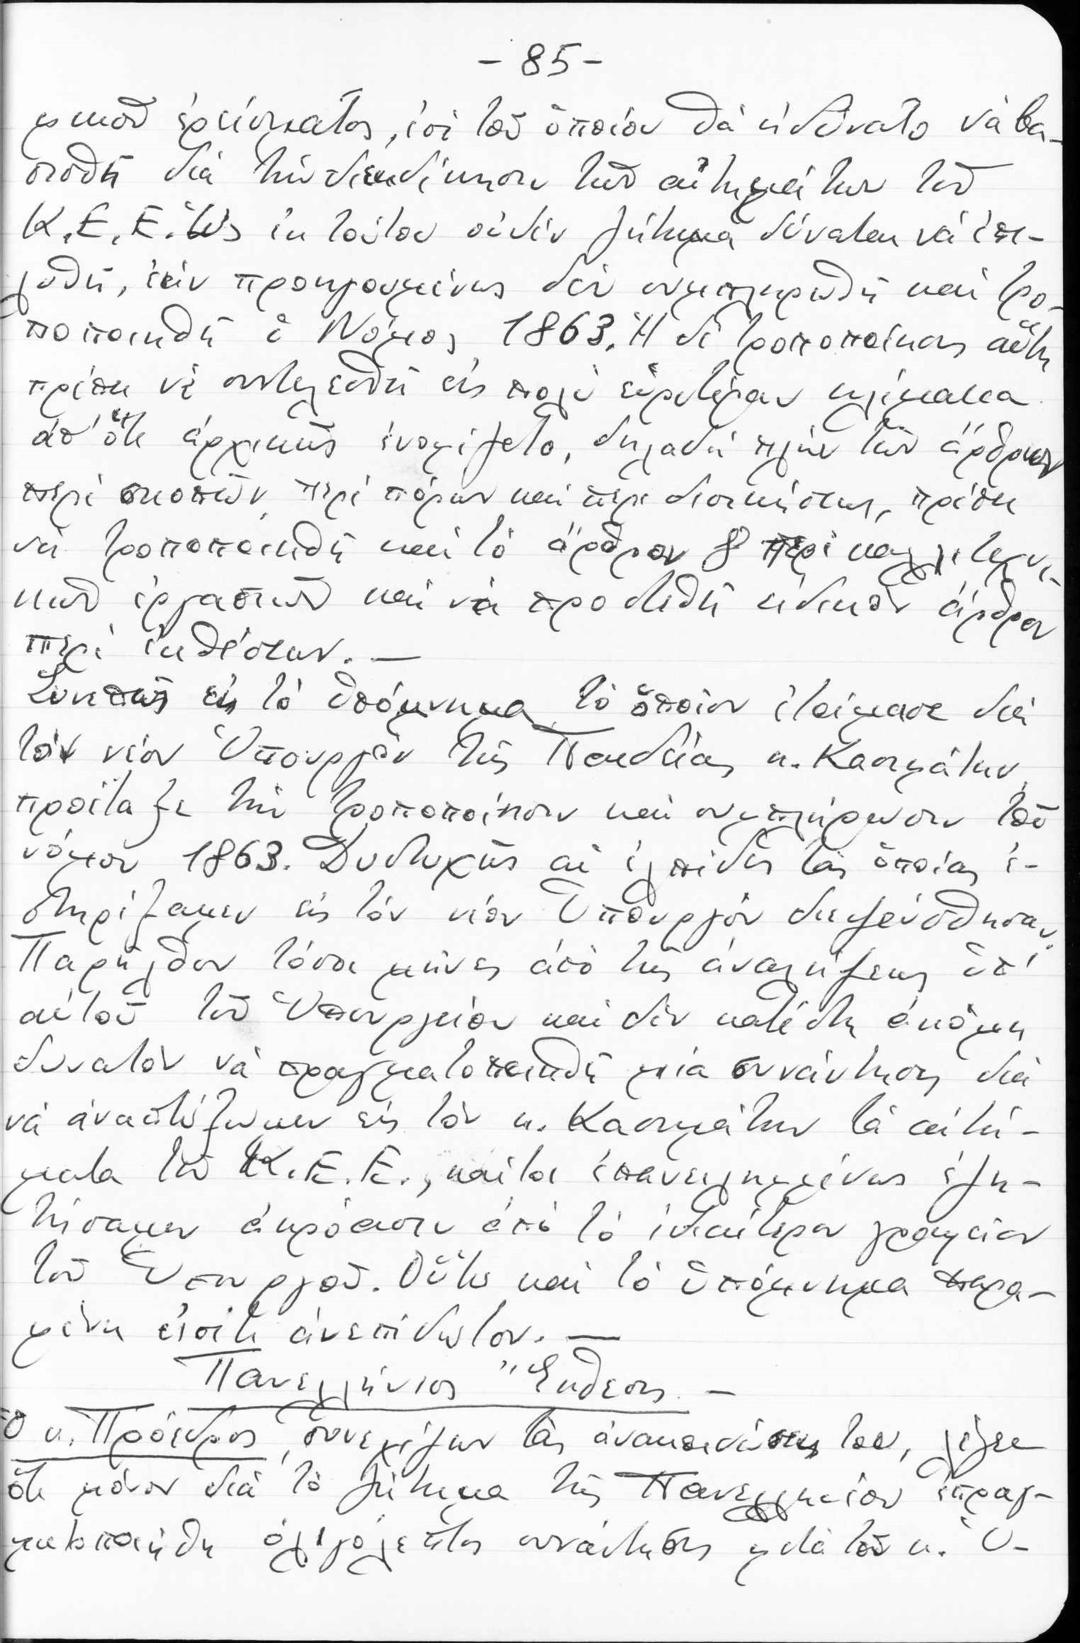 - 85 -
μικοῦ ἐρείσματος, ἐπί τοῦ ὁποίου θά ἠδύνατο νά βα-
σισθῆ διά τήν διεκδίκησιν τῶν αἰτημάτων τοῦ
Κ.Ε.Ε. Ὡς ἐκ τούτου οὐδέν ζήτημα δύναται νά ἐπι-
λυθῆ, ἐάν προηγουμένως δέν συμπληρωθῆ καί τρο-
ποποιηθῆ ὁ Νόμος 1863. Ἡ δέ τροποποίησις αὕτη
πρέπει νά συντελεσθῆ εἰς πολύ εὐρυτέραν κλίμακα
ἀπ' ὅτι ἀρχικῶς ἐνομίζετο, δηλαδή πλήν τῶν ἄρθρων
περί σκοπῶν, περί πόρων καί περί διοικήσεως, πρέπει
νά τροποποιηθῆ καί τό ἄρθρον 8 περί καλλιτεχνι-
κῶν ἐργασιῶν καί νά προστεθῆ εἰδικόν ἄρθρον
περί ἐκθέσεων. —
Συνεπῶς εἰς τό ὑπόμνημα, τό ὁποῖον ἑτοίμασε διά
τόν νέον Ὑπουργόν τῆς Παιδείας κ. Κασιμάτην,
προέταξε τήν τροποποίησιν καί συμπλήρωσιν τοῦ
νόμου 1863. Δυστυχῶς αἱ ἐλπίδες τάς ὁποίας ἐ-
στηρίξαμεν εἰς τόν νέον Ὑπουργόν διεψεύσθησαν.
Παρῆλθον τόσοι μῆνες ἀπό τῆς ἀναλήψεως ὑπ'
αὐτοῦ τοῦ Ὑπουργείου καί δέν κατέστη ἀκόμη
δυνατόν νά πραγματοποιηθῆ μία συνάντησις διά
νά ἀναπτύξωμεν εἰς τόν κ. Κασιμάτην τά αἰτή-
ματα τοῦ Κ.Ε.Ε., καίτοι ἐπανειλημμένως ἐζη-
τήσαμεν ἀκρόασιν ἀπό τό ἰδιαίτερον γραφεῖον
τοῦ Ὑπουργοῦ. Οὕτω καί τό ὑπόμνημα παρα-
μένει εἰσέτι ἀνεπίδωτον. —
Πανελλήνιος Ἔκθεσις. —
Ὁ κ. Πρόεδρος, συνεχίζων τάς ἀνακοινώσεις του, λέγει
ὅτι μόνον διά τό ζήτημα τῆς Πανελληνίου ἐπραγ-
ματοποιήθη ὀλιγόλεπτος συνάντησις μετά τοῦ κ. Ὑ-